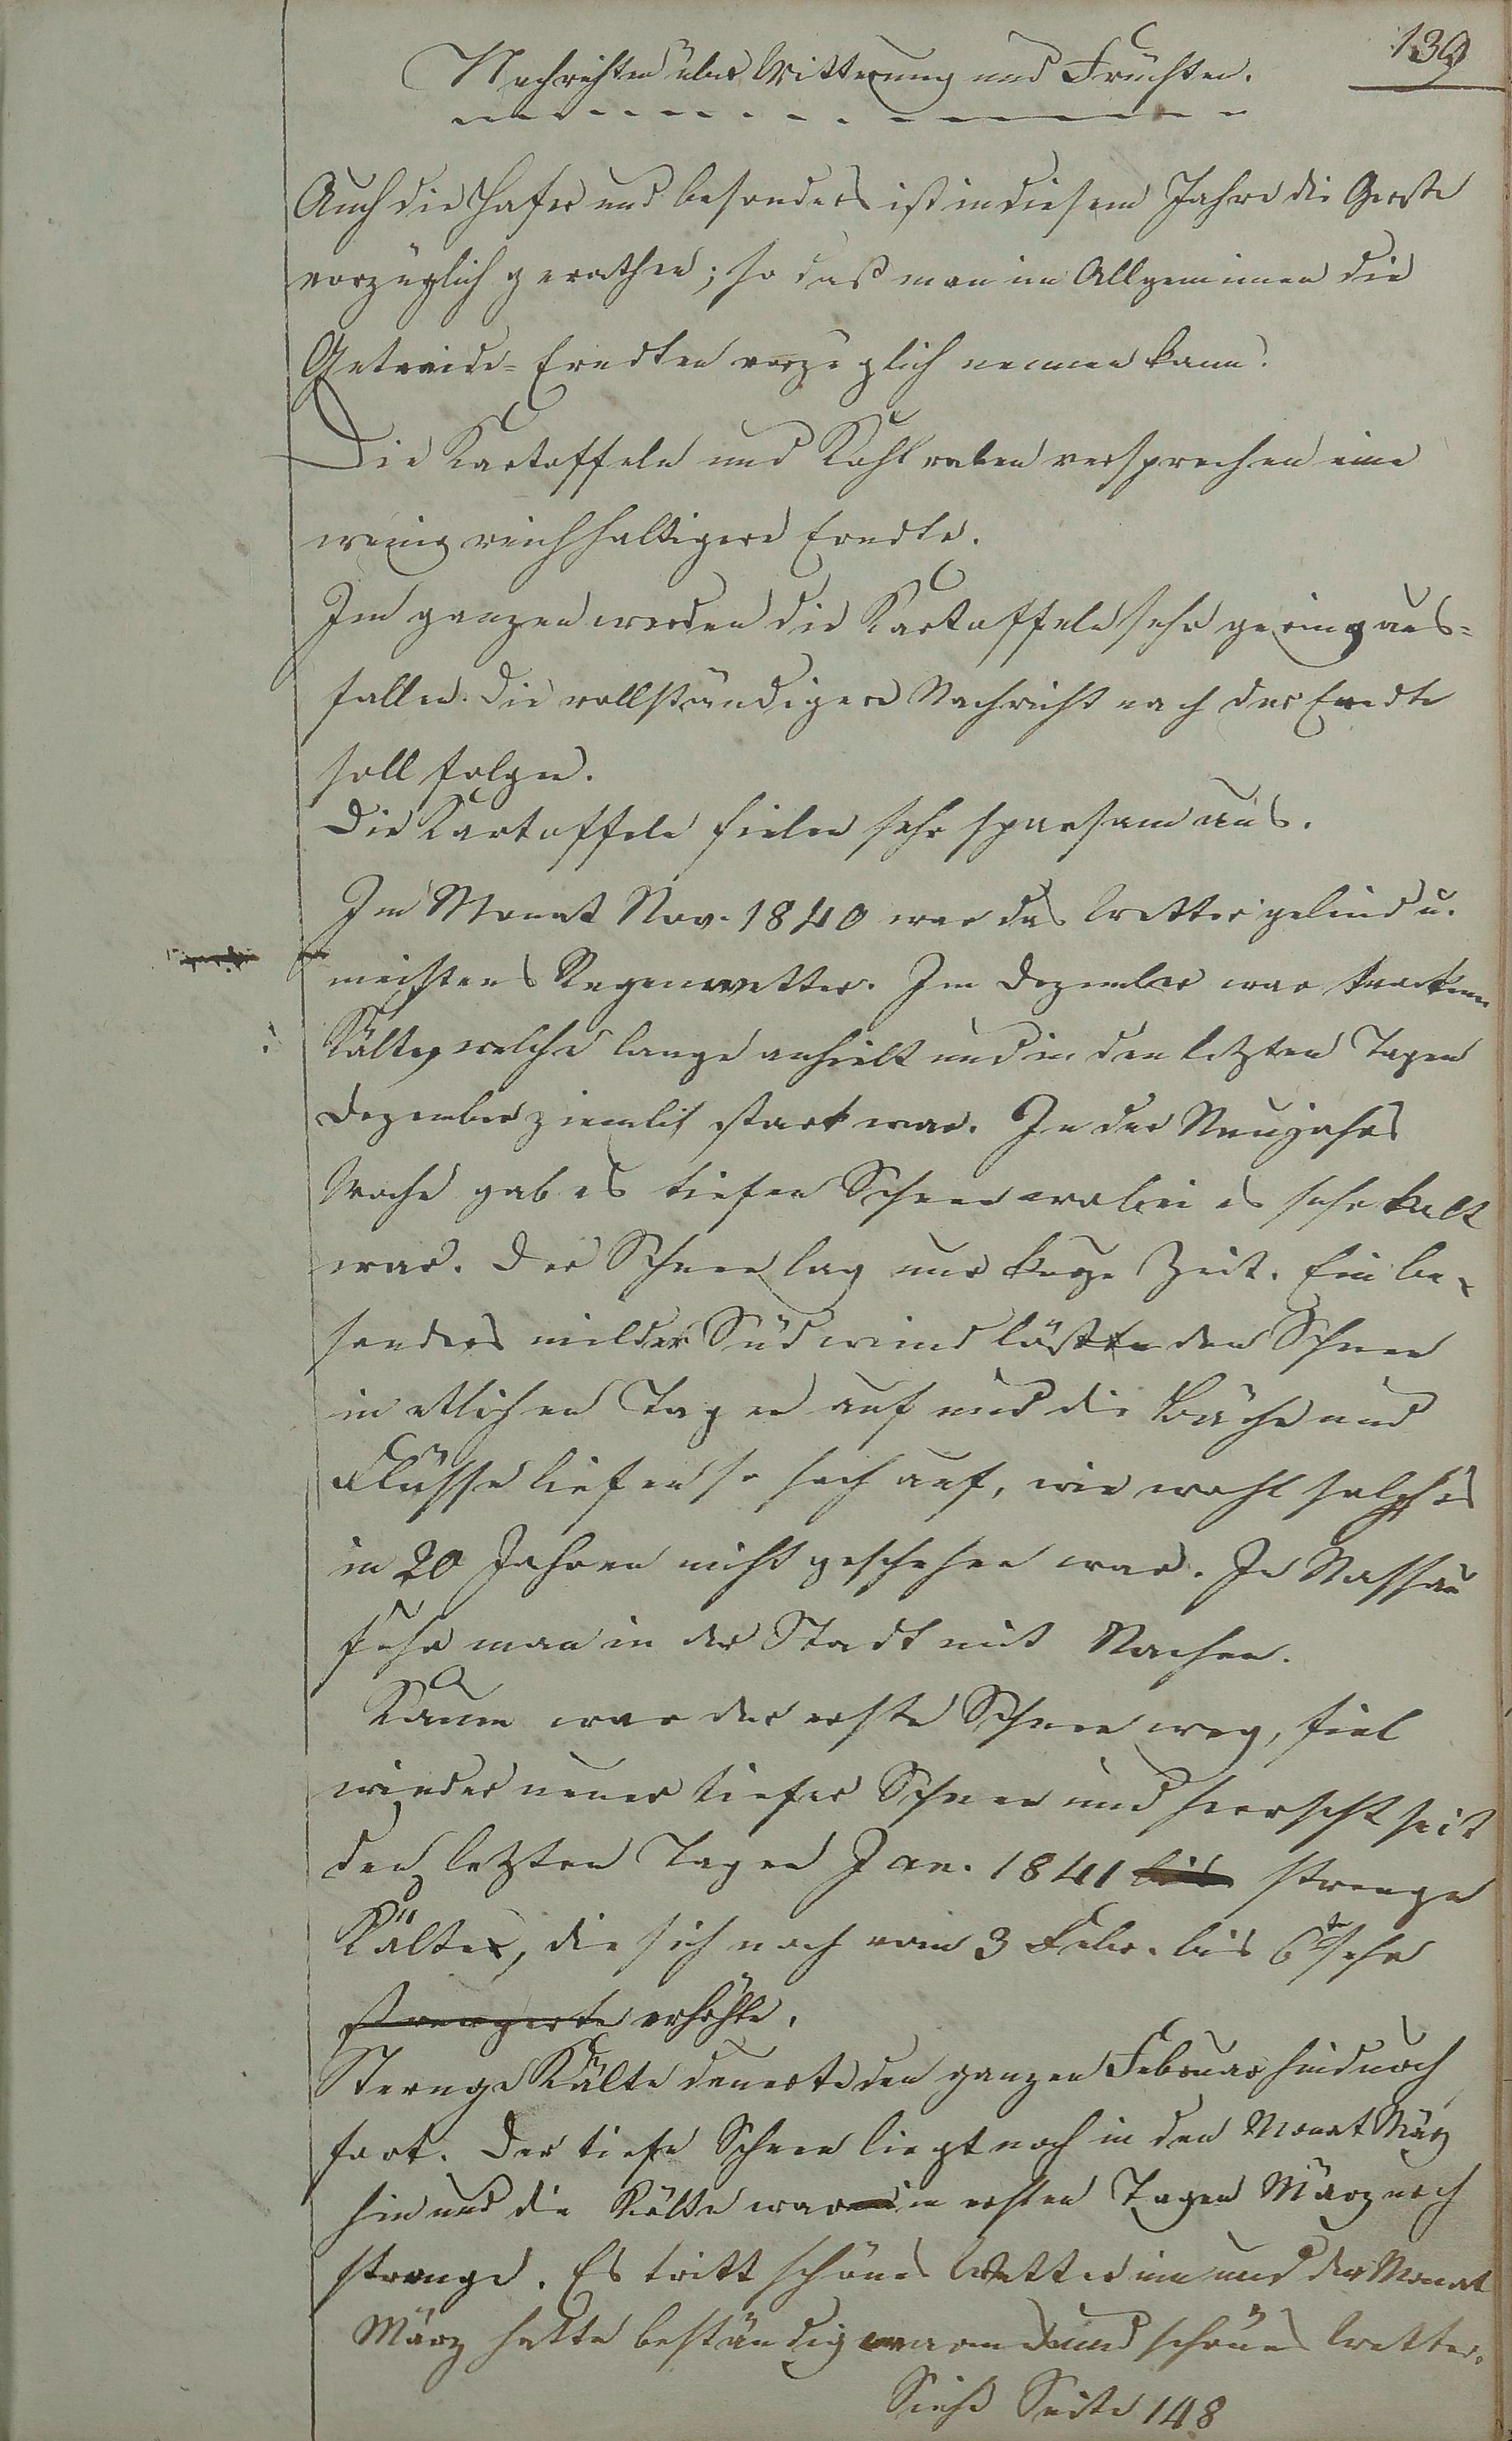 139
Nachrichten über Witterung und Früchten.
Auch die Hafer und besonders ist in diesem Jahre die Gerste
vorzüglich gerathen; so daß man im Allgemeinen die
Getreide-Erndten vorzüglich nennen kann.
Die Kartoffeln und Kohlraben versprechen eine
wenig reichhaltigere Erndte.
Im ganzen werden die Kartoffeln sehr gering aus=
fallen. Die vollständigere Nachricht nach der Erndte
soll folgen.
Die Kartoffeln fielen sehr sparsam aus.
Im Monat Nov. 1840 war das Wetter gelind u.
meistens Regenwetter. Im Dezember war trockene
Kälte, welche lange anhielt und in den letzten Tagen
Dezember ziemlich stark war. In der Neujahrs
Woche gab es tiefen Schnee wobei es sehr kalt
war. Der Schnee lag nur kurze Zeit. Ein be-
sonders milder Südwind löste den Schnee
in etlichen Tagen auf und die Bäche und
Flüsse liefen so hoch auf, wie wohl solches
in 20 Jahren nicht geschehen war. In Nassau
fuhr man in der Stadt mit Nachen.
Kaum war der erste Schnee weg, fiel
wieder neuer tiefer Schnee und herrscht seit
den letzten Tagen Jan. 1841 bis strenge
Kälte, die sich noch vom 3 Febr. bis 6ten sehr
strengerte erhöhte.
Strenge Kälte dauerte den ganzen Februar hindurch
fort. Der tiefe Schnee liegt noch in den Monat März
hin und die Kälte war in ersten Tagen März noch
strenge. Es tritt schönes Wetter ein und der Monat
März hatte beständig warm und schönes Wetter.
Siehe Seite 148